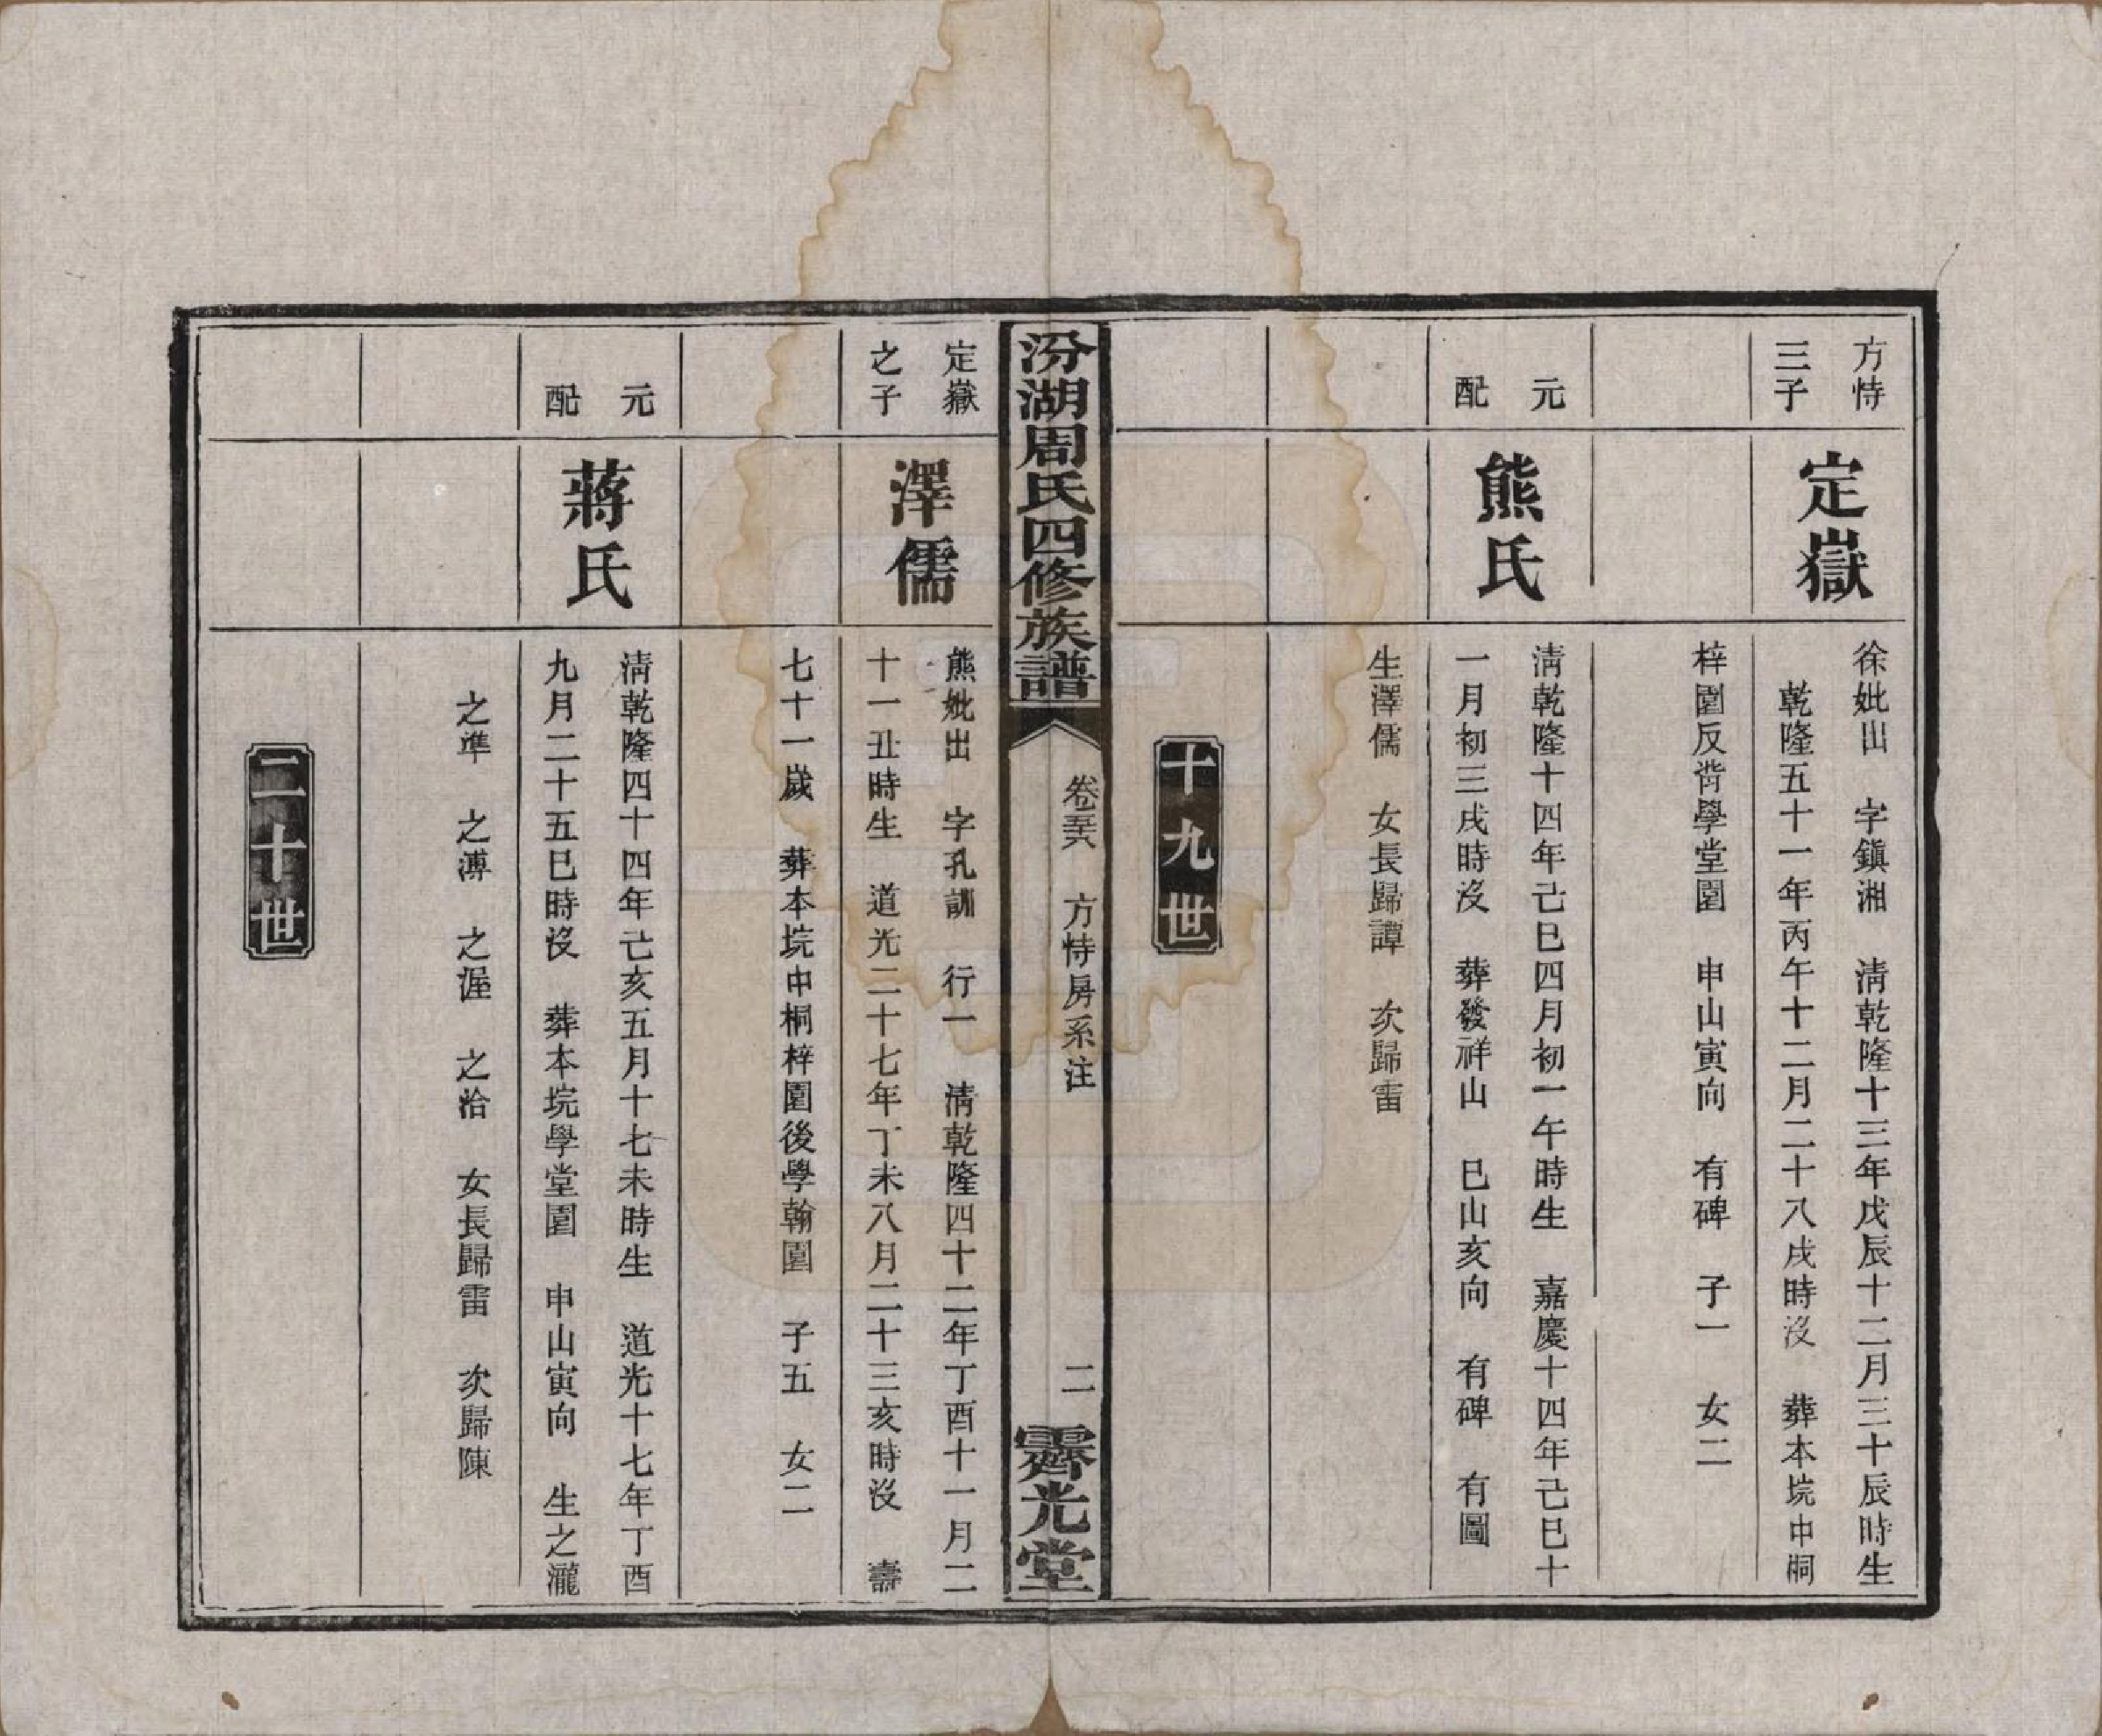 方恃
三子
定嶽
徐妣出　字鎮湘　清乾隆十三年戊辰十二月三十辰時生
乾隆五十一年丙午十二月二十八戌時沒　葬本垸中桐
梓園反背學堂園　申山寅向　有碑　子一　女二
元
配
熊氏
清乾隆十四年己巳四月初一午時生　嘉慶十四年己巳十
一月初三戌時沒　葬發祥山　巳山亥向　有碑　有圖
生澤儒　女長歸譚　次歸雷
十九世
汾湖周氏四修族譜
卷
方恃房系注
二
霽光堂
定嶽
之子
澤儒
熊妣出　字孔訓　行一　清乾隆四十二年丁酉十一月二
十一丑時生　道光二十七年丁未八月二十三亥時沒　壽
七十一歲　葬本垸中桐梓園後學翰園　子五　女二
元
配
蔣氏
清乾隆四十四年己亥五月十七未時生　道光十七年丁酉
九月二十五巳時沒　葬本垸學堂園　申山寅向　生之瀧
之準　之溥　之渥　之治　女長歸雷　次歸陳
二十世